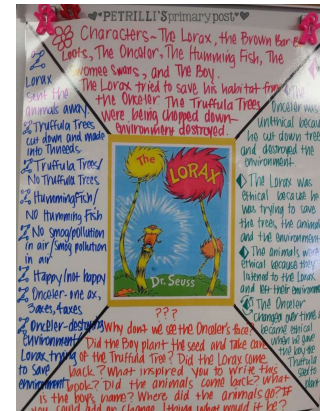 PETRILLI'S primary post
Characters- The Lorax, the Brown Bar-Ba
Loots, The Onceler, The Humming Fish, The
Swans, and The Boy.
The Lorax tried to save his habitat from
the Onceler. The Truffula Trees
were being chopped down-
environment destroyed.
Lorax
sent the
animals away
Truffula Trees
cut down and made
into Thneeds
Truffula Trees/
No Truffula Trees
Humming Fish/
No Humming Fish
No smog/pollution
in air/smog pollution
in air
Happy/not happy
Onceler-one ax,
3 axes, 4 axes
Onceler-destroying
environment
Lorax trying
to save
environment
The
LORAX
Dr. Seuss
Onceler was
unethical because
he cut down trees
and destroyed the
environment.
The Lorax was
ethical because he
was trying to save
the trees, the animals
and the environment
The animals were
ethical because they
listened to the Lorax
and left their environment
The Onceler
changed over time &
became ethical
when he gave
the boy the
Truffula
seed to
plant
???
Why don't we see the Onceler's face?
Did the Boy plant the seed and take care
of the Truffula Tree? Did the Lorax come
back? What inspired you to write this
book? Did the animals come back? What
is the boy's name? Where did the animals go? If
you could add or change 1 thing what would it be?